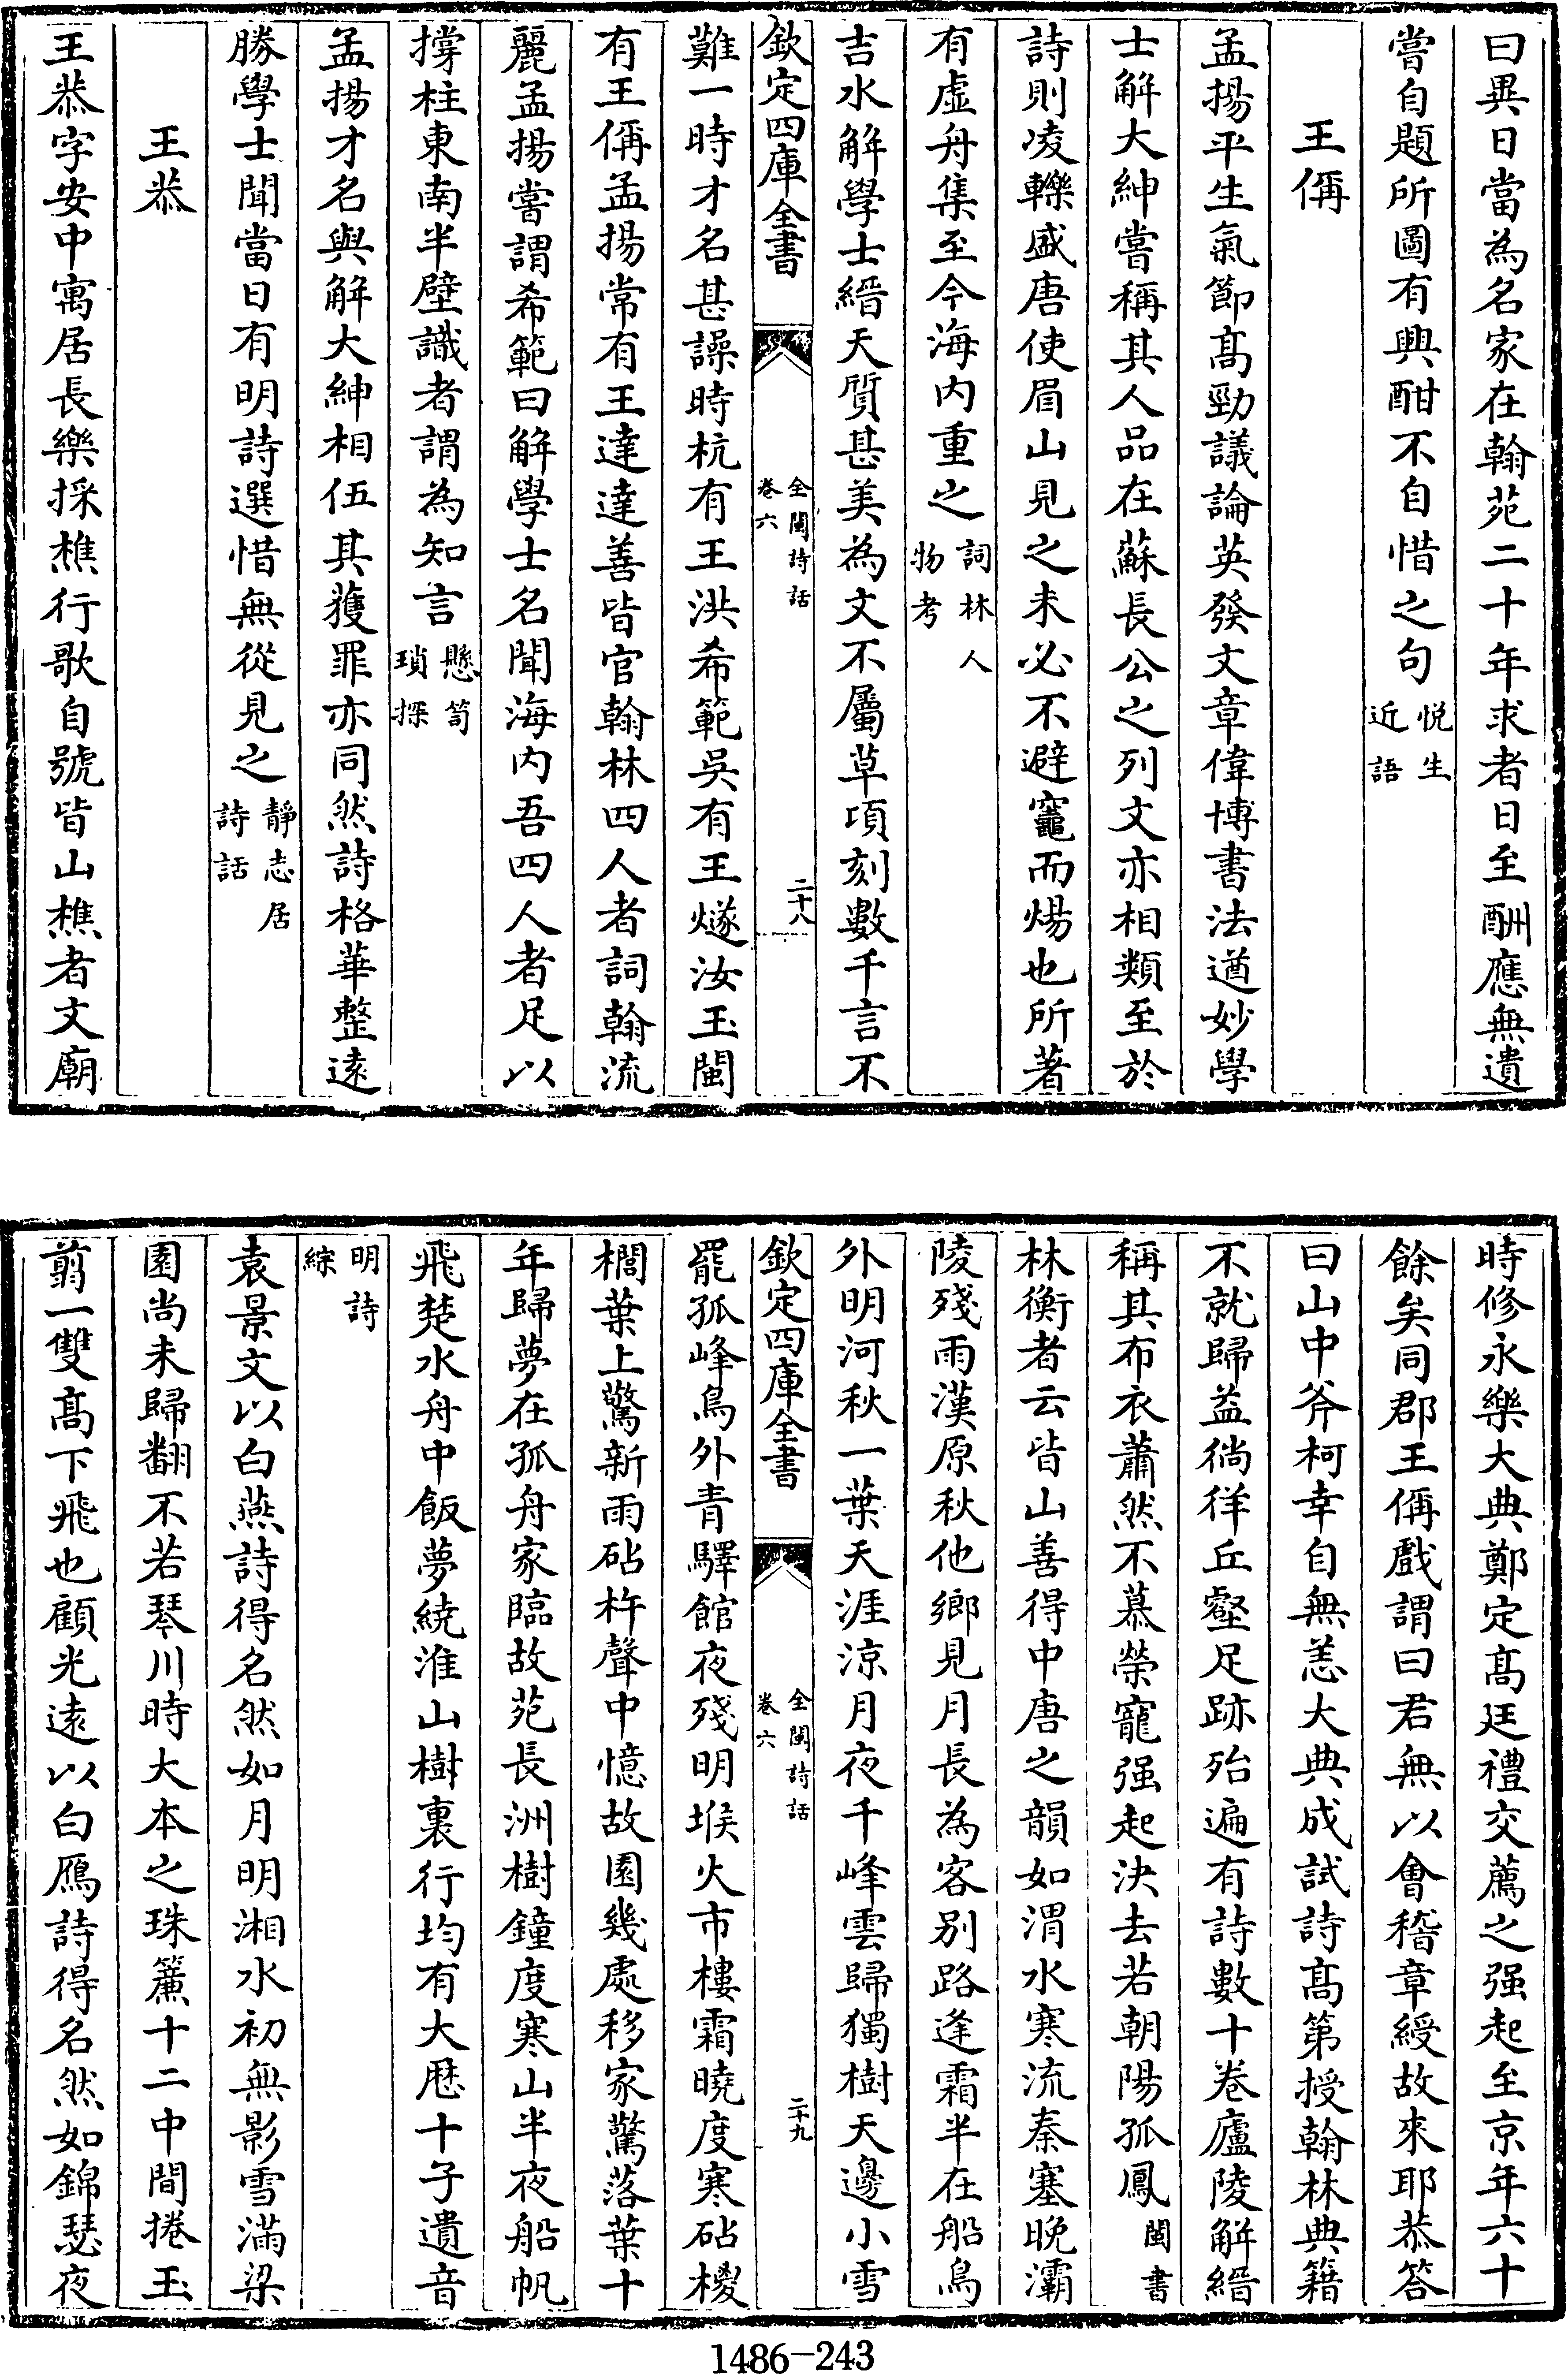 曰異日當為名家在翰苑二十年求者日至酬應無遺
嘗自題所圖有興酣不自惜之句悦生近語
王偁
孟揚平生氣節髙勁議論英發文章偉博書法遒妙學
士解大紳嘗稱其人品在蘇長公之列文亦相類至於
詩則凌轢盛唐使眉山見之未必不避竈而煬也所著
有虚舟集至今海内重之詞林人物考
吉水解學士縉天質甚美為文不屬草頃刻數千言不
欽定四庫全書 全閩詩話卷六 二十八
難一時才名甚譟時杭有王洪希範吳有王燧汝玉閩
有王偁孟揚常有王達達善皆官翰林四人者詞翰流
麗孟揚嘗謂希範曰解學士名聞海内吾四人者足以
撐柱東南半壁識者謂為知言懸笥瑣探
孟揚才名與解大紳相伍其獲罪亦同然詩格華整逺
勝學士聞當日有明詩選惜無從見之靜志居詩話
王恭
王恭字安中寓居長樂採樵行歌自號皆山樵者文廟
時修永樂大典鄭定髙廷禮交薦之强起至京年六十
餘矣同郡王偁戲謂曰君無以會稽章綬故來耶恭答
曰山中斧柯幸自無恙大典成試詩髙第授翰林典籍
不就歸益徜徉丘壑足跡殆遍有詩數十卷廬陵解縉
稱其布衣蕭然不慕榮寵强起決去若朝陽孤鳳閩書
林衡者云皆山善得中唐之韻如渭水寒流秦塞晩灞
陵殘雨漢原秋他鄉見月長為客别路逢霜半在船鳥
外明河秋一葉天涯涼月夜千峰雲歸獨樹天邊小雪
欽定四庫全書 全閩詩話卷六 二十九
罷孤峰鳥外青驛館夜殘明堠火市樓霜曉度寒砧椶
櫚葉上驚新雨砧杵聲中憶故園幾處移家驚落葉十
年歸夢在孤舟家臨故苑長洲樹鐘度寒山半夜船帆
飛楚水舟中飯夢繞淮山樹裏行均有大厯十子遺音
明詩綜
袁景文以白燕詩得名然如月明湘水初無影雪滿梁
園尚未歸翻不若琴川時大本之珠簾十二中間捲玉
剪一雙髙下飛也顧光逺以白鴈詩得名然如錦瑟夜
1486-243